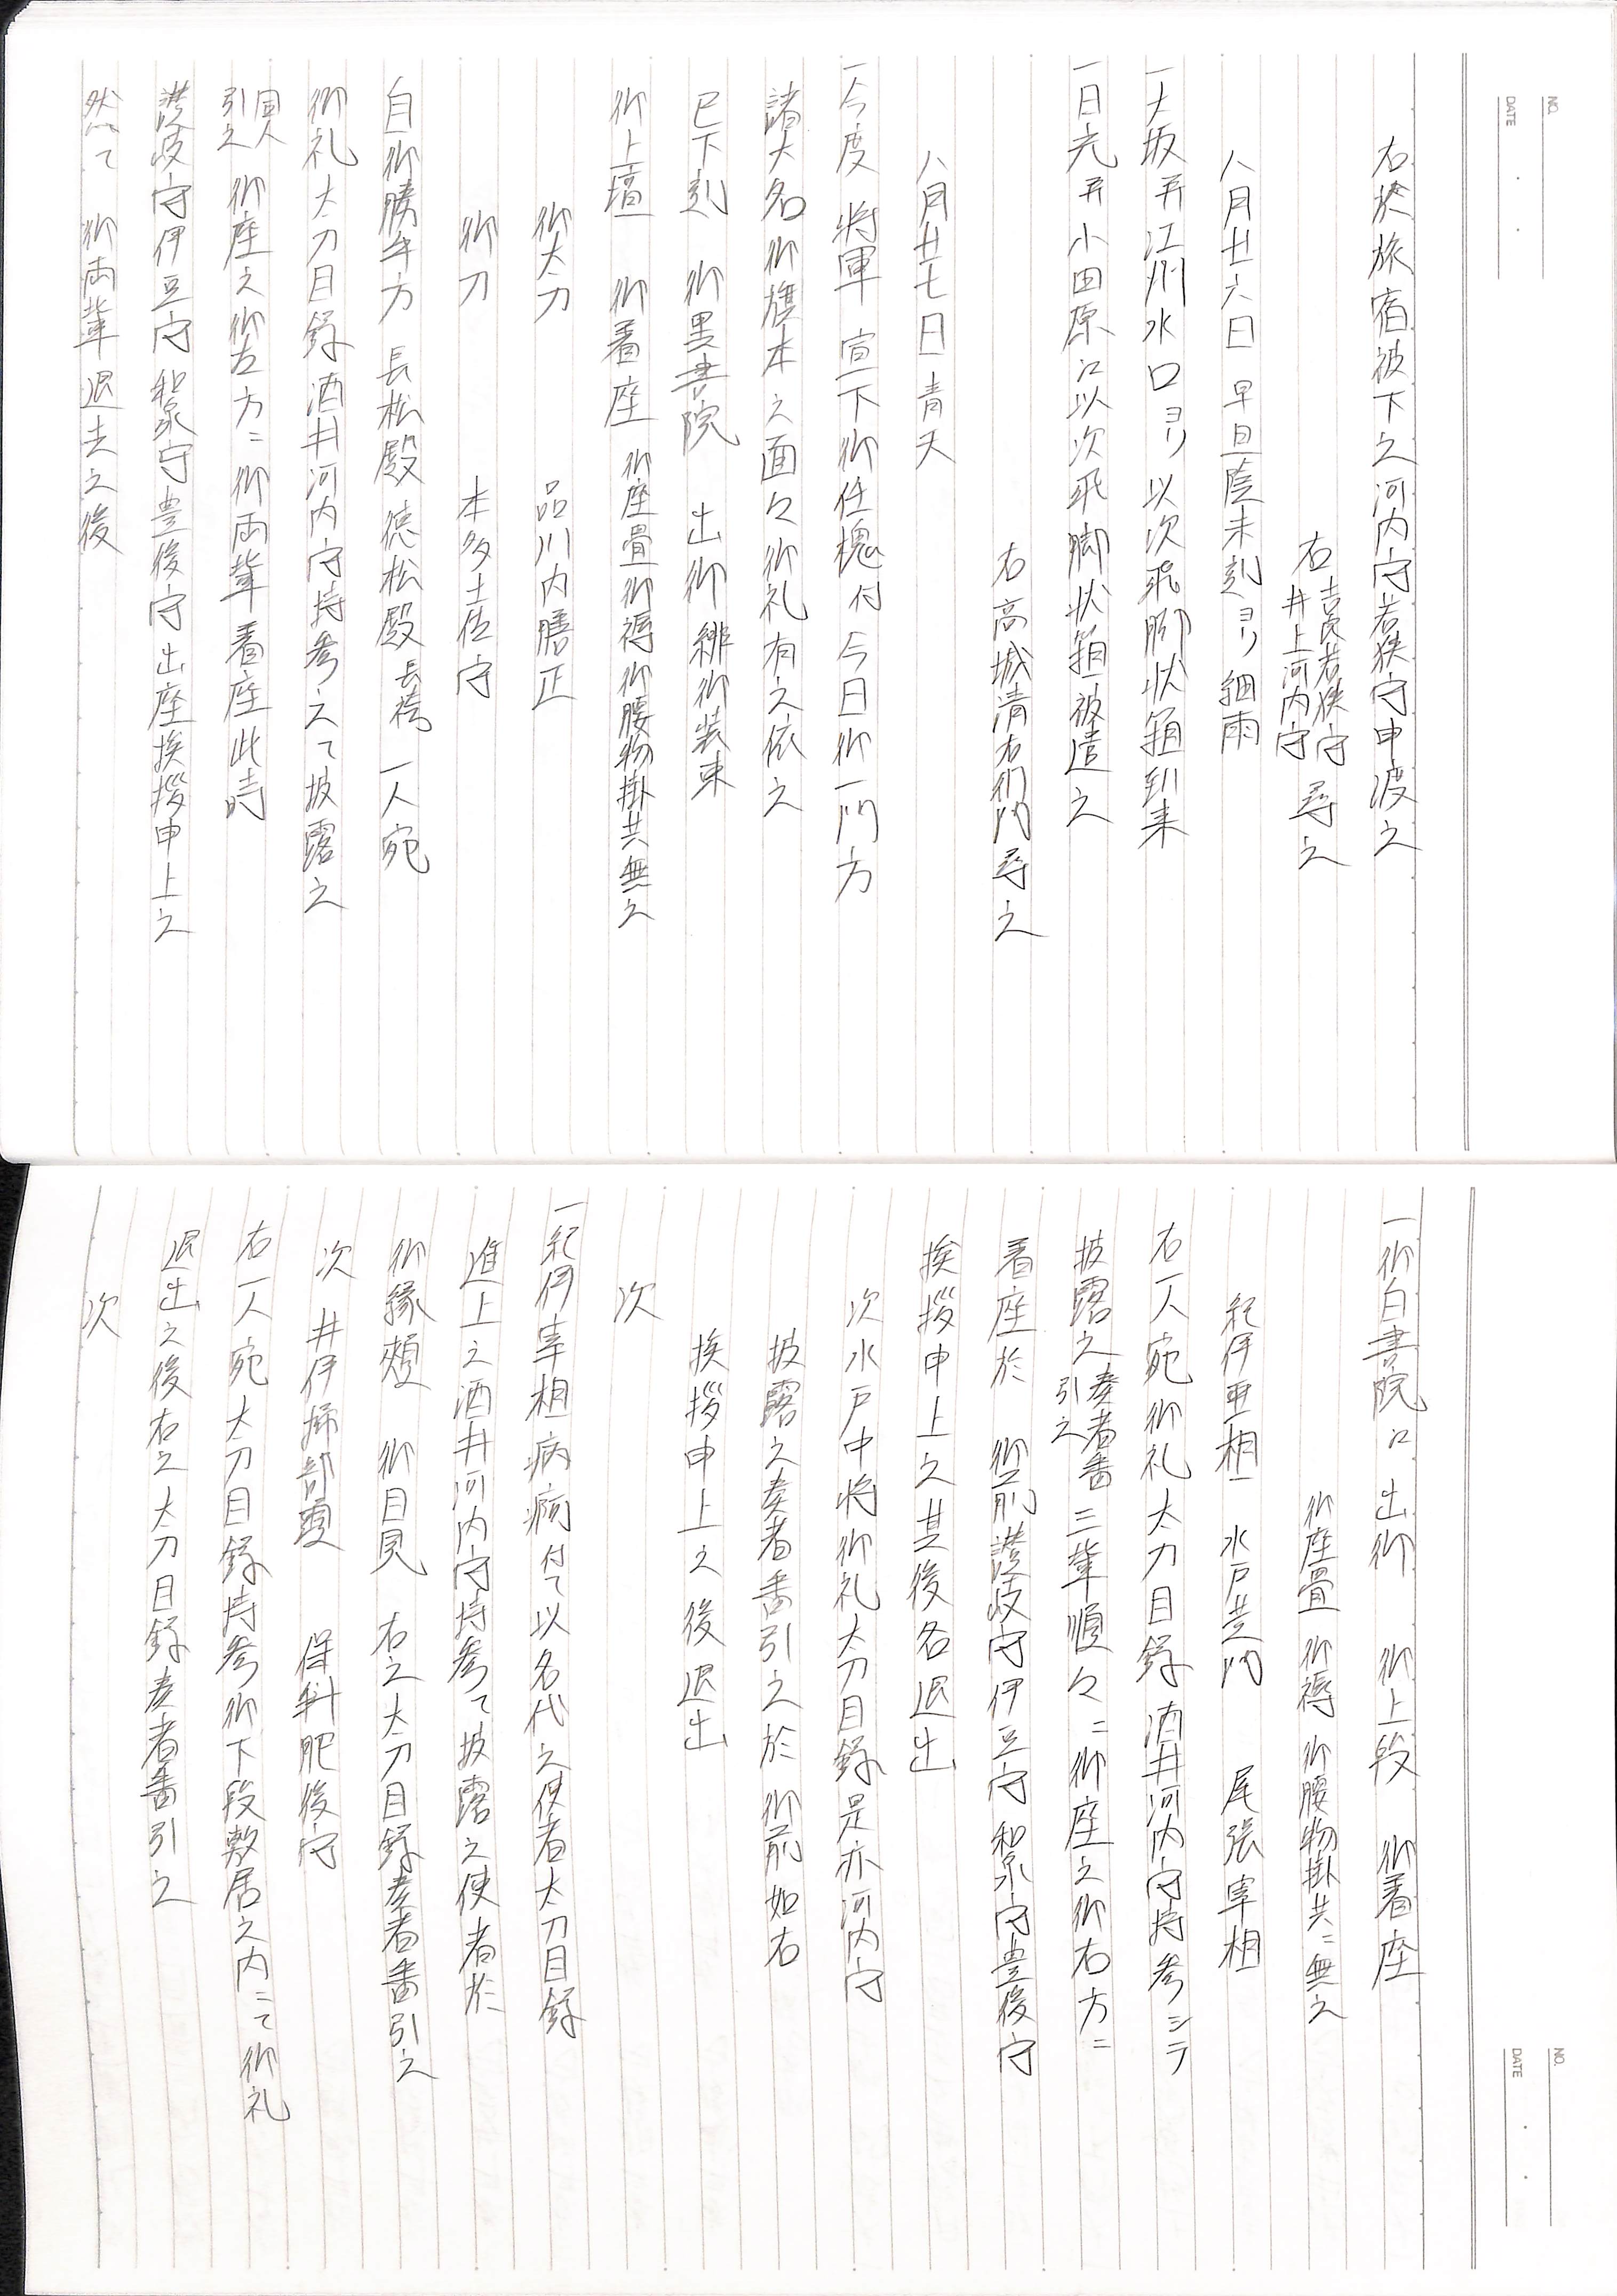 NO.
DATE
右於旅宿被下之河内守若狭守申渡之
右 吉良若狭守 井上河内守 尋之
八月廿六日 早旦陰未刻ヨリ細雨
一大坂并江州水口ヨリ以次飛脚状箱到来
一日光并小田原江以次飛脚状箱被遣之
右高城清右衛門尋之
八月廿七日 青天
一今度 将軍 宣下御任槐付今日御一門方
諸大名御旗本之面々御礼有之依之
巳下刻 御黒書院 出御 緋御装束
御上壇 御着座 御座畳御褥御腰物掛共無之
御太刀 品川内膳正
御刀 本多土佐守
自御勝手方 長松殿 徳松殿 長袴 一人宛
御礼太刀目録酒井河内守持参之て披露之
同人引之 御座之御右方ニ御両輩着座此時
讃岐守伊豆守和泉守豊後守出座挨拶申上之
然て 御両輩退去之後
NO.
DATE
一御白書院江 出御 御上段 御着座
御座畳 御褥 御腰物掛共ニ無之
紀伊亜相 水戸黄門 尾張宰相
右一人宛御礼太刀目録酒井河内守持参シテ
披露之 奏者番引之 三輩順々ニ御座之御右方ニ
着座於 御前讃岐守伊豆守和泉守豊後守
挨拶申上之其後各退出
次水戸中将御礼太刀目録是亦河内守
披露之奏者番引之於 御前如右
挨拶申上之後退出
次
一紀伊宰相病痾付て以名代之使者太刀目録
進上之酒井河内守持参て披露之使者於
御縁頬 御目見 右之太刀目録奏者番引之
次 井伊掃部頭 保科肥後守
右一人宛太刀目録持参御下段敷居之内ニて御礼
退出之後右之太刀目録奏者番引之
次